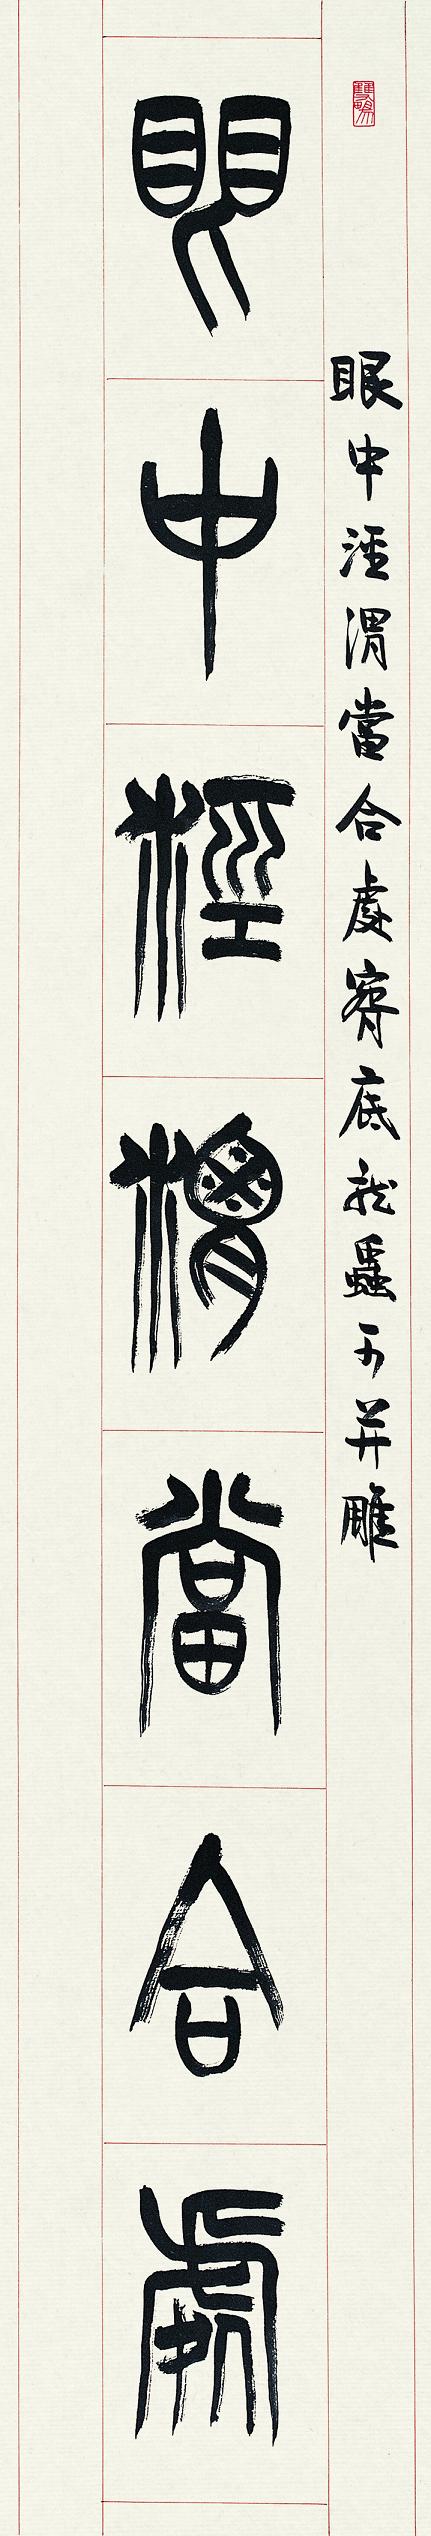 眼中涇渭當合處腕底龍蟲可并雕
眼中涇渭當合處